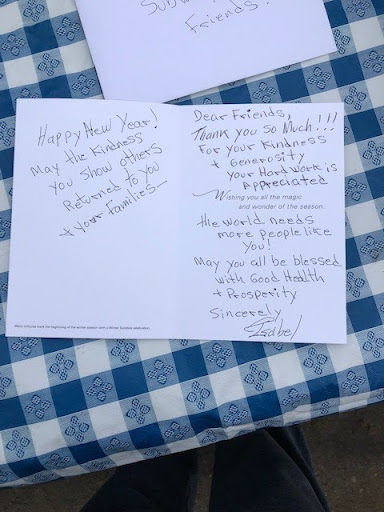 Friends!
Happy New Year!
May the Kindness
you show others
Returned to you
+ your Families—
Dear Friends,
Thank you so Much!!!
For your Kindness
+ Generosity
your Hard Work is
Appreciated
Wishing you all the magic
and wonder of the season.
the World needs
more people like
you!
May you all be blessed
with Good Health
+ Prosperity
Sincerely